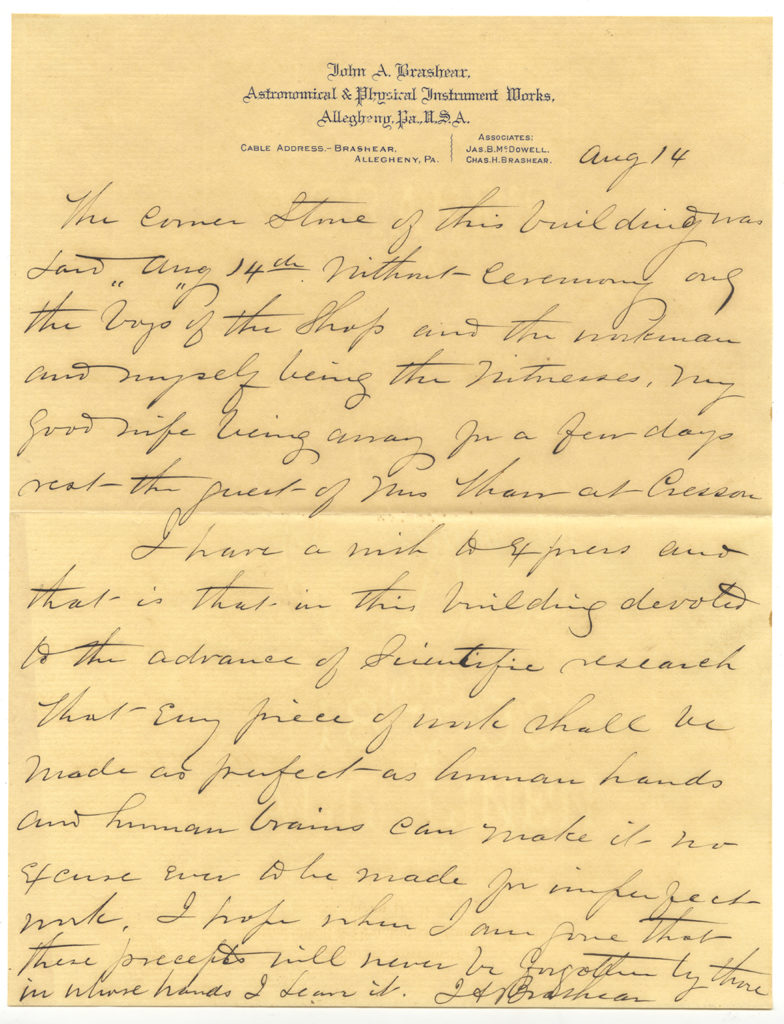 John A. Brashear,
Astronomical & Physical Instrument Works,
Allegheny, Pa., U.S.A.
CABLE ADDRESS.- BRASHEAR,
ALLEGHENY, PA.
ASSOCIATES:
JAS. B. McDOWELL.
CHAS. H. BRASHEAR.
Aug 14
The corner Stone of this building was
laid "Aug 14th" Without ceremony only
the boys of the Shop and the workman
and myself being the witnesses, my
good wife being away for a few days
rest the guest of Mrs Thaw at Cresson
I have a wish to express and
that is that in this building devoted
to the advance of Scientific research
that Every piece of work shall be
made as perfect as human hands
and human brains can make it no
Excuse ever to be made for imperfect
work. I hope when I am gone that
these precepts will never be forgotten by those
in whose hands I leave it. J A Brashear